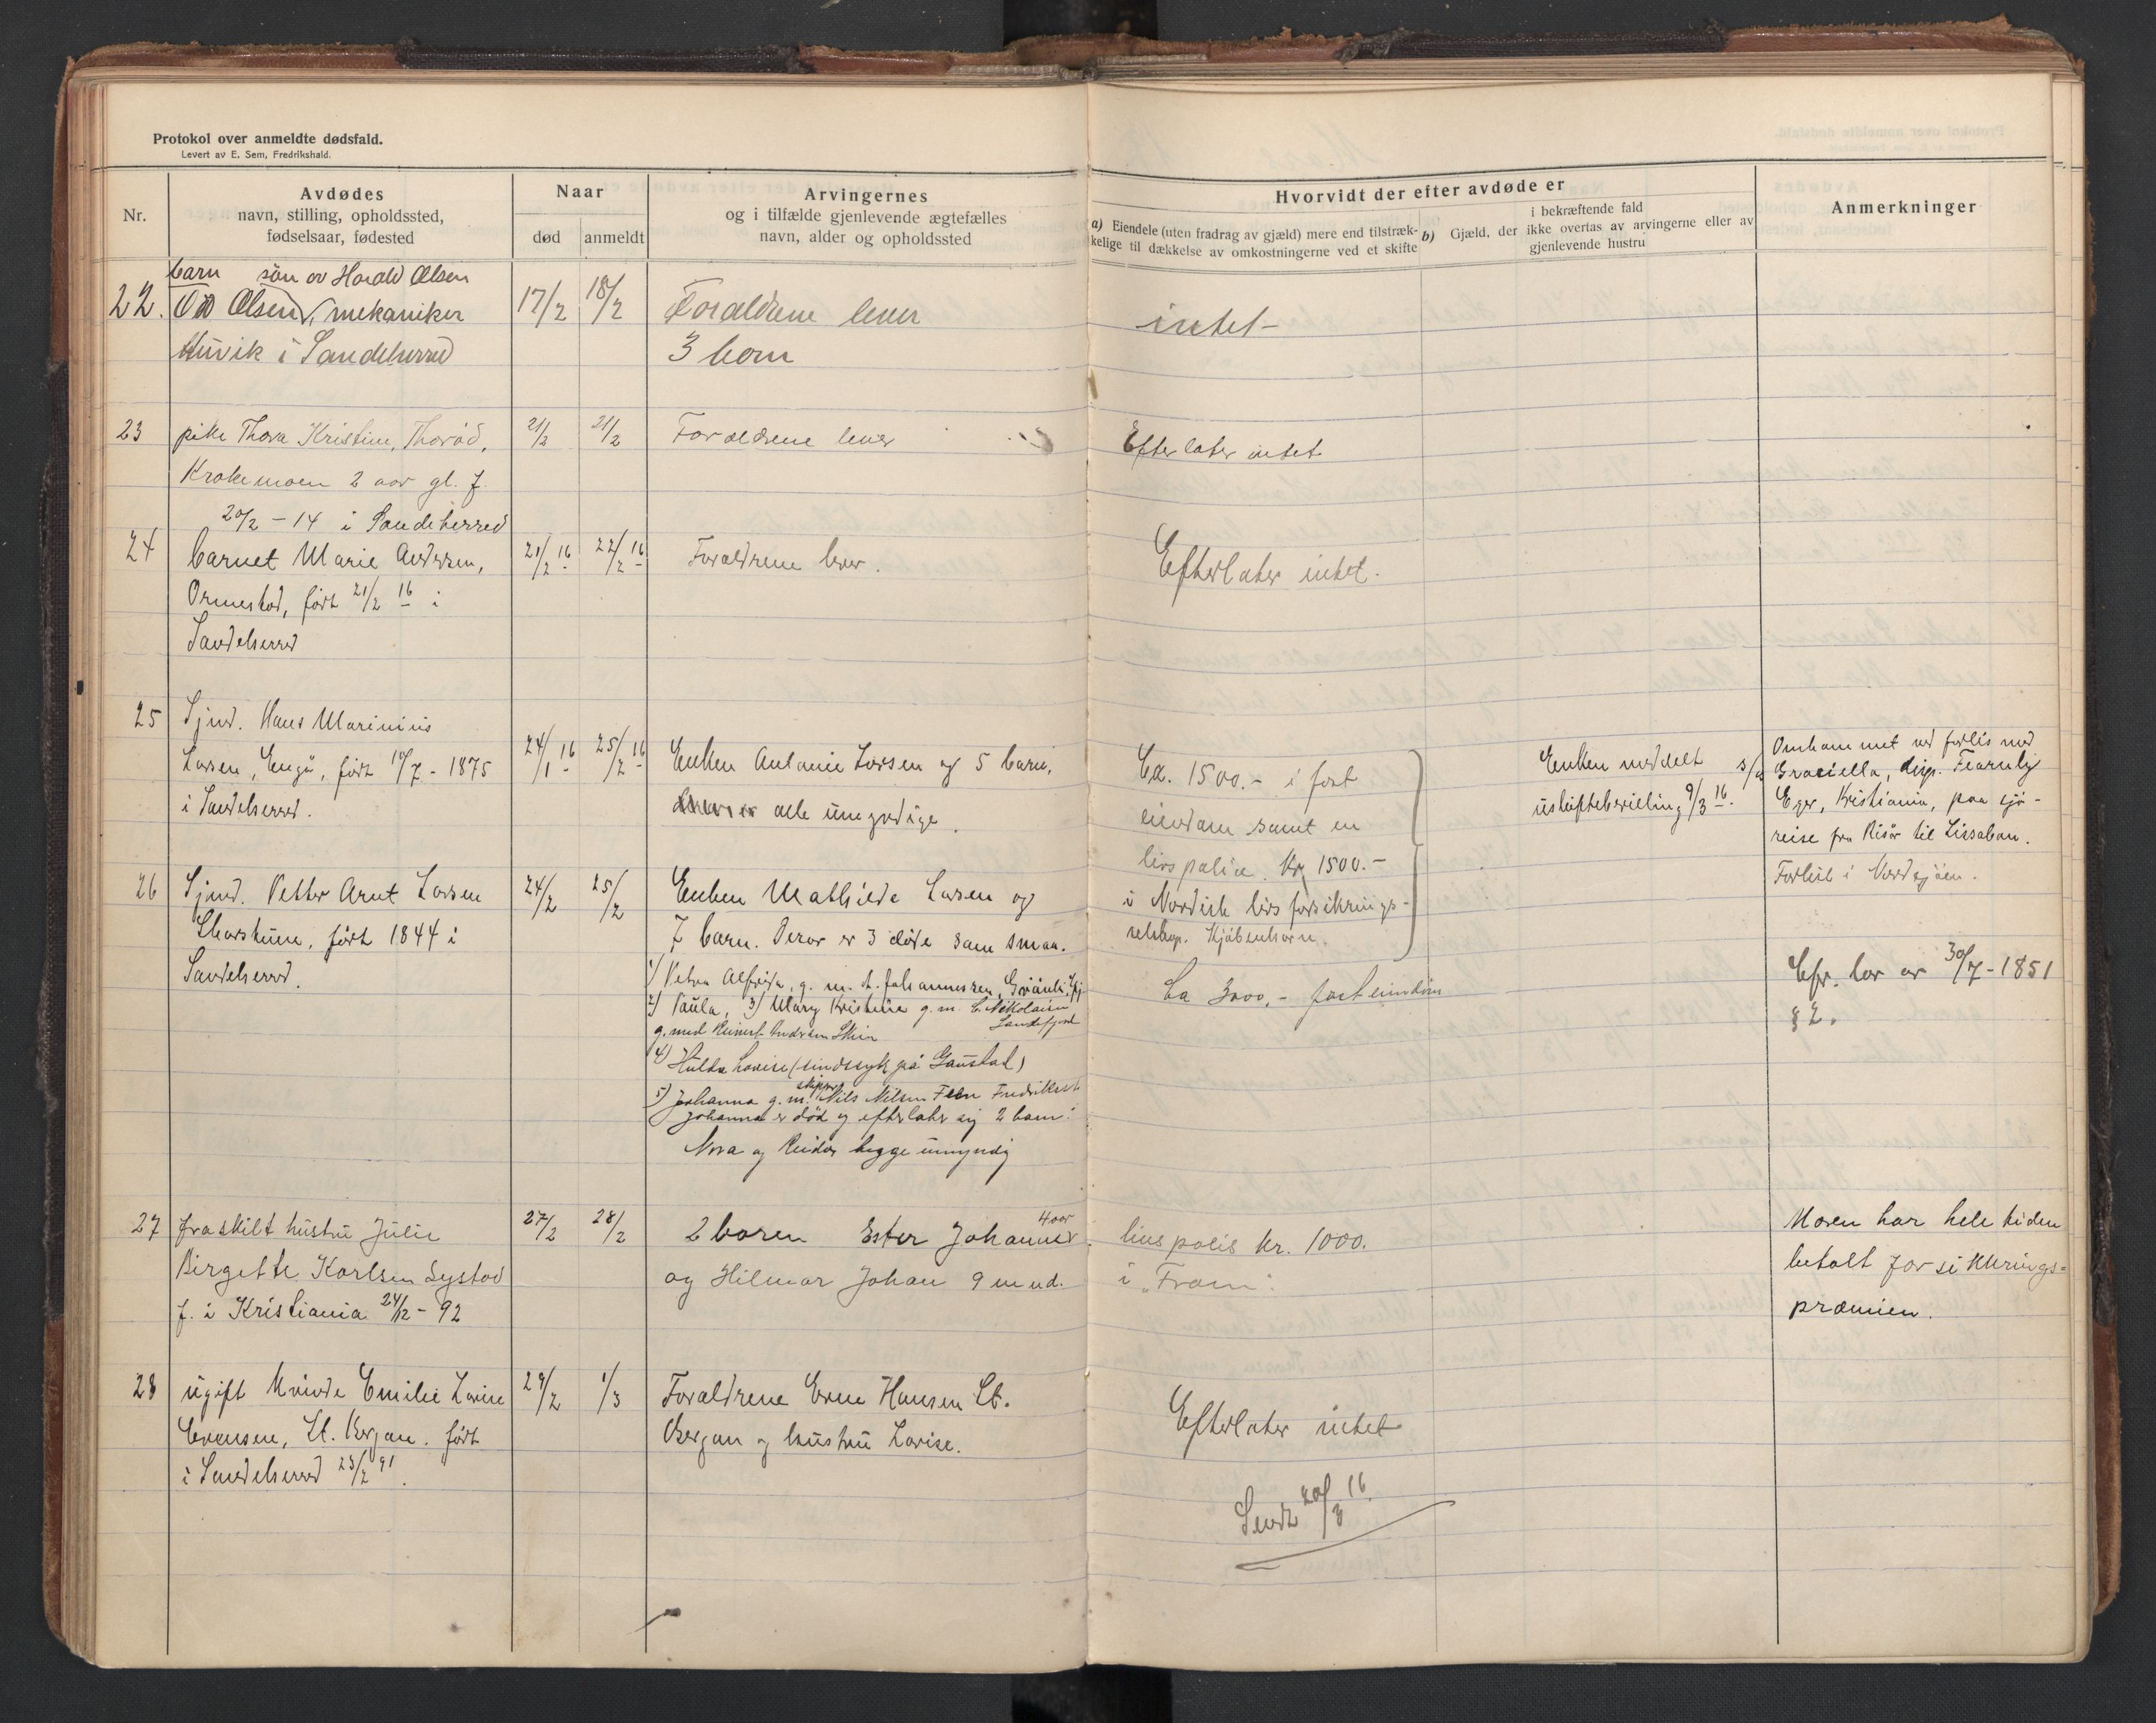 Protokol over anmeldte dødsfald.
Levert av E. Sem, Fredrikshald.
Nr.
Avdødes
navn, stilling, opholdssted,
fødselsaar, fødested
Naar
død
anmeldt
Arvingernes
og i tilfælde gjenlevende ægtefælles
navn, alder og opholdssted
Hvorvidt der efter avdøde er
a) Eiendele (uten fradrag av gjæld) mere end tilstræk-
kelige til dækkelse av omkostningerne ved et skifte
b) Gjæld, der
i bekræftende fald
ikke overtas av arvingerne eller av
gjenlevende hustru
Anmerkninger
barn søn av Harald Olsen
22. Olsen, mekaniker 17/2 18/2 Foraldrene lever intet
i Sandeherred 3 born
23 pike Thora Kristine, Thorød, 21/2 21/2 Foraldrene lever Efterlater intet
Krokemoen 2 aar gl. f.
20/2 - 14 i Sandeherred
24 barnet Marie Andersen, 21/2 16 22/2 16 Foraldrene lever. Efterlater intet.
Ormestad, født 21/2 16 i
Sandeherred
25 Sjmd. Hans Marinius
Larsen, Engø, født 10/7 - 1875 24/1 16 25/2 16 Enken Antonie Larsen og 5 barn,
i Sandeherred. alle umyndige.
Ca. 1500.- i fast
eiendom samt en
livspolice. Kr. 1500.-
i Nordisk livsforsikrings-
selskap. Kjøbenhavn.
Enken meddelt
uskiftebevilling 9/3 16.
Omkommet ved forlis med
Graciella, disp. Fearnly
Eger, Kristiania, paa sjø-
reise fra Risør til Lissabon.
Forlist i Nordsjøen.
26 Sjmd. Petter Arnt Larsen 24/2 25/2 Enken Mathilde Larsen og
født 1844 i 7 barn. Derav er 3 døde som smaa.
Sandeherred.
1) Petra Alfrida, g. m. A. Johannesen,
2) Paula, 3) Mary Kristine g. m. C. Nikolaisen
Sandefjord
g. med Reinert Andersen
4) Hulda Lovise (sindssyk på Gaustad)
5) Johanna g. m. skipper Nils Nilsen Fredrikst.
Johanna er død og efterlater sig 2 barn:
Nora og Reidar begge umyndig
Ca 3000,- fast eiendom
Cfr. lov av 30/7 - 1851
§ 2.
27 fraskilt hustru Julie 27/2 28/2 2 boren Ester Johanne 4 aar
Birgette Karlsen Lystad og Hilmar Johan 9 mnd.
f. i Kristiania 24/12 - 92
livspolis kr. 1000.
i "Fram".
Moren har hele tiden
betalt forsikrings=
præmien.
28 ugift kvinde Emilie Lovise 29/2 1/3 Foraldrene Even Hansen St.
Evensen, St. Bergan. født Bergan og hustru Lovise.
i Sandeherred 23/2 91.
Efterlater intet
Sendt 20/3 16.